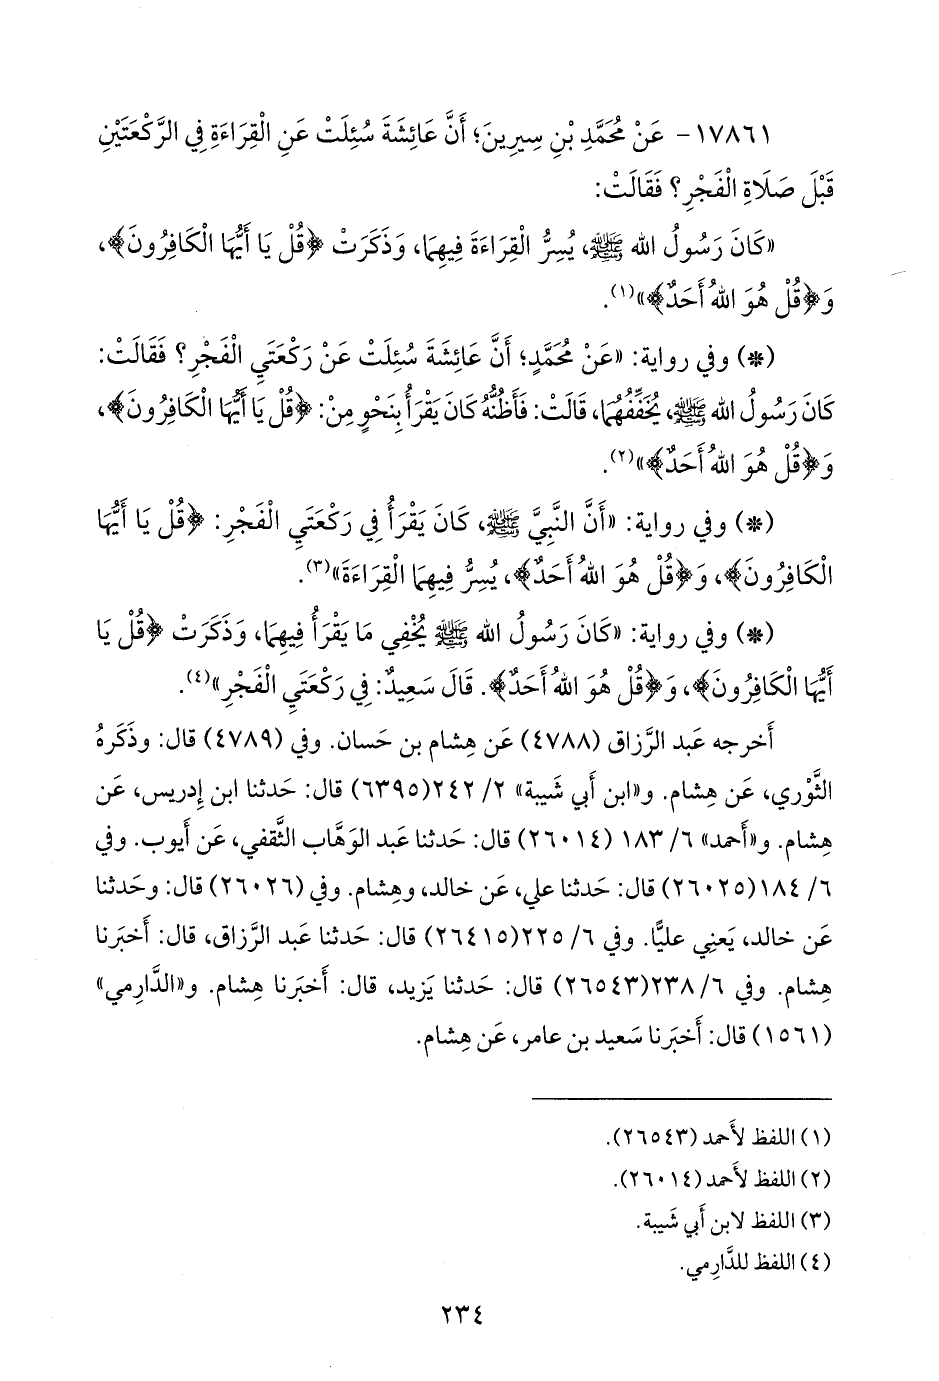 ١٧٨٦١- عَنْ مُحَمَّدِ بْنِ سِيرِينَ؛ أَنَّ عَائِشَةَ سُئِلَتْ عَنِ الْقِرَاءَةِ فِي الرَّكْعَتَيْنِ
قَبْلَ صَلَاةِ الْفَجْرِ؟ فَقَالَتْ:
«كَانَ رَسُولُ الله ﷺ، يُسِرُّ الْقِرَاءَةَ فِيهِمَا، وَذَكَرَتْ ﴿قُلْ يَا أَيُّهَا الْكَافِرُونَ﴾،
وَ﴿قُلْ هُوَ اللهُ أَحَدٌ﴾»(١).
(*) وفي رواية: «عَنْ مُحَمَّدٍ؛ أَنَّ عَائِشَةَ سُئِلَتْ عَنْ رَكْعَتَيِ الْفَجْرِ؟ فَقَالَتْ:
كَانَ رَسُولُ الله ﷺ، يُخَفِّفُهُمَا، قَالَتْ: فَأَظُنُّهُ كَانَ يَقْرَأُ بِنَحْوٍ مِنْ: ﴿قُلْ يَا أَيُّهَا الْكَافِرُونَ﴾،
وَ﴿قُلْ هُوَ اللهُ أَحَدٌ﴾»(٢).
(*) وفي رواية: «أَنَّ النَّبِيَّ ﷺ، كَانَ يَقْرَأُ فِي رَكْعَتَيِ الْفَجْرِ: ﴿قُلْ يَا أَيُّهَا
الْكَافِرُونَ﴾، وَ﴿قُلْ هُوَ اللهُ أَحَدٌ﴾، يُسِرُّ فِيهِمَا الْقِرَاءَةَ»(٣).
(*) وفي رواية: «كَانَ رَسُولُ الله ﷺ يُخْفِي مَا يَقْرَأُ فِيهِمَا، وَذَكَرَتْ ﴿قُلْ يَا
أَيُّهَا الْكَافِرُونَ﴾، وَ﴿قُلْ هُوَ اللهُ أَحَدٌ﴾. قَالَ سَعِيدٌ: فِي رَكْعَتَيِ الْفَجْرِ»(٤).
أَخرجه عَبد الرَّزاق (٤٧٨٨) عَن هِشام بن حَسان. وفي (٤٧٨٩) قال: وذَكَرهُ
الثَّوْري، عَن هِشام. و«ابن أَبي شَيبة» ٢/ ٢٤٢(٦٣٩٥) قال: حَدثنا ابن إِدريس، عَن
هِشام. و«أَحمد» ٦/ ١٨٣ (٢٦٠١٤) قال: حَدثنا عَبد الوَهَّاب الثَّقفي، عَن أَيوب. وفي
٦/ ١٨٤(٢٦٠٢٥) قال: حَدثنا علي، عَن خالد، وهِشام. وفي (٢٦٠٢٦) قال: وحَدثنا
عَن خالد، يَعنِي عليًّا. وفي ٦/ ٢٢٥(٢٦٤١٥) قال: حَدثنا عَبد الرَّزاق، قال: أَخبَرنا
هِشام. وفي ٦/ ٢٣٨(٢٦٥٤٣) قال: حَدثنا يَزيد، قال: أَخبَرنا هِشام. و«الدَّارِمي»
(١٥٦١) قال: أَخبَرنا سَعيد بن عامر، عَن هِشام.
(١) اللفظ لأَحمد (٢٦٥٤٣).
(٢) اللفظ لأَحمد (٢٦٠١٤).
(٣) اللفظ لابن أَبي شَيبة.
(٤) اللفظ للدَّارِمي.
٢٣٤